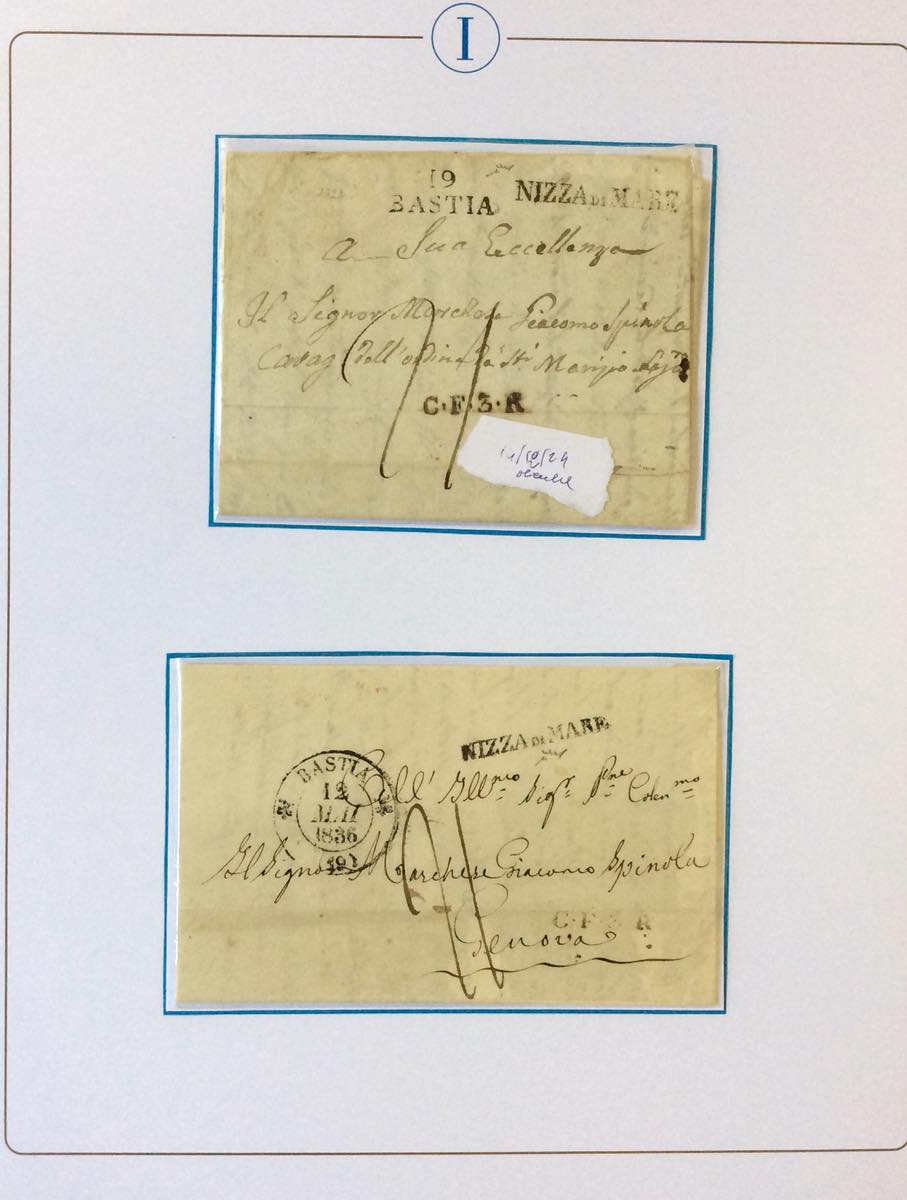 I
19
BASTIA
NIZZA DI MARE
a Sua Eccellenza
Il Signor Marchese Giacomo Spinola
dell'ordine
C.F.3.R
NIZZA DI MARE
BASTIA
12
1836
(19)
All' Ill.mo Sig.r P.ne Colen.mo
Il Signor Marchese Giacomo Spinola
C.F.3.R
Genova